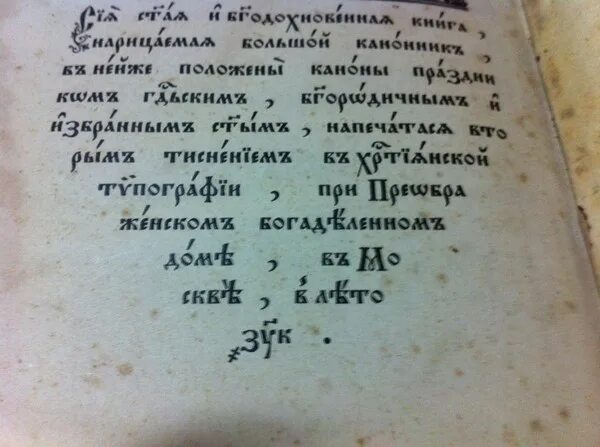 Сїѧ ст҃аѧ и҆ бг҃одохнове́ннаѧ кни́га ,
нарица́емаѧ большо́й кано́нникъ ,
въ не́йже положены̀ кано́ны пра́здни
кѡмъ гдⷭ҇ьскимъ , бг҃оро́дичнымъ и҆
и҆збра́ннымъ ст҃ы́мъ , напеча́тасѧ вто
ры́мъ тисне́нїемъ въ хрⷭ҇тїѧ́нской
тѷпогра́фїи , при Преѡбра
же́нскомъ богадѣ́ленномъ
до́мѣ , въ Мо
сквѣ̀ , в̾ лѣ́то
҂зу҃к .